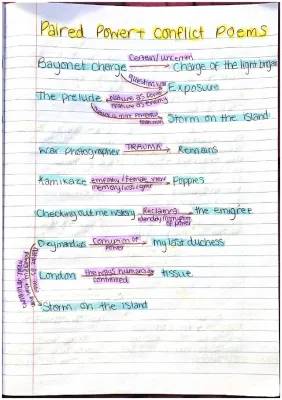 Paired Power + Conflict Poems
Bayonet Charge Certain/uncertain Charge of the light brigade
questions war Exposure
The prelude nature as power
nature as enemy
nature is more powerful than man Storm on the island
War Photographer TRAUMA Remains
Kamikaze empathy/female view Poppies
memory/loss/grief
Checking out me history Reclaiming the emigree
identity/corruption of power
Ozymandias Corruption of my last duchess
power
London tissue
Storm on the island